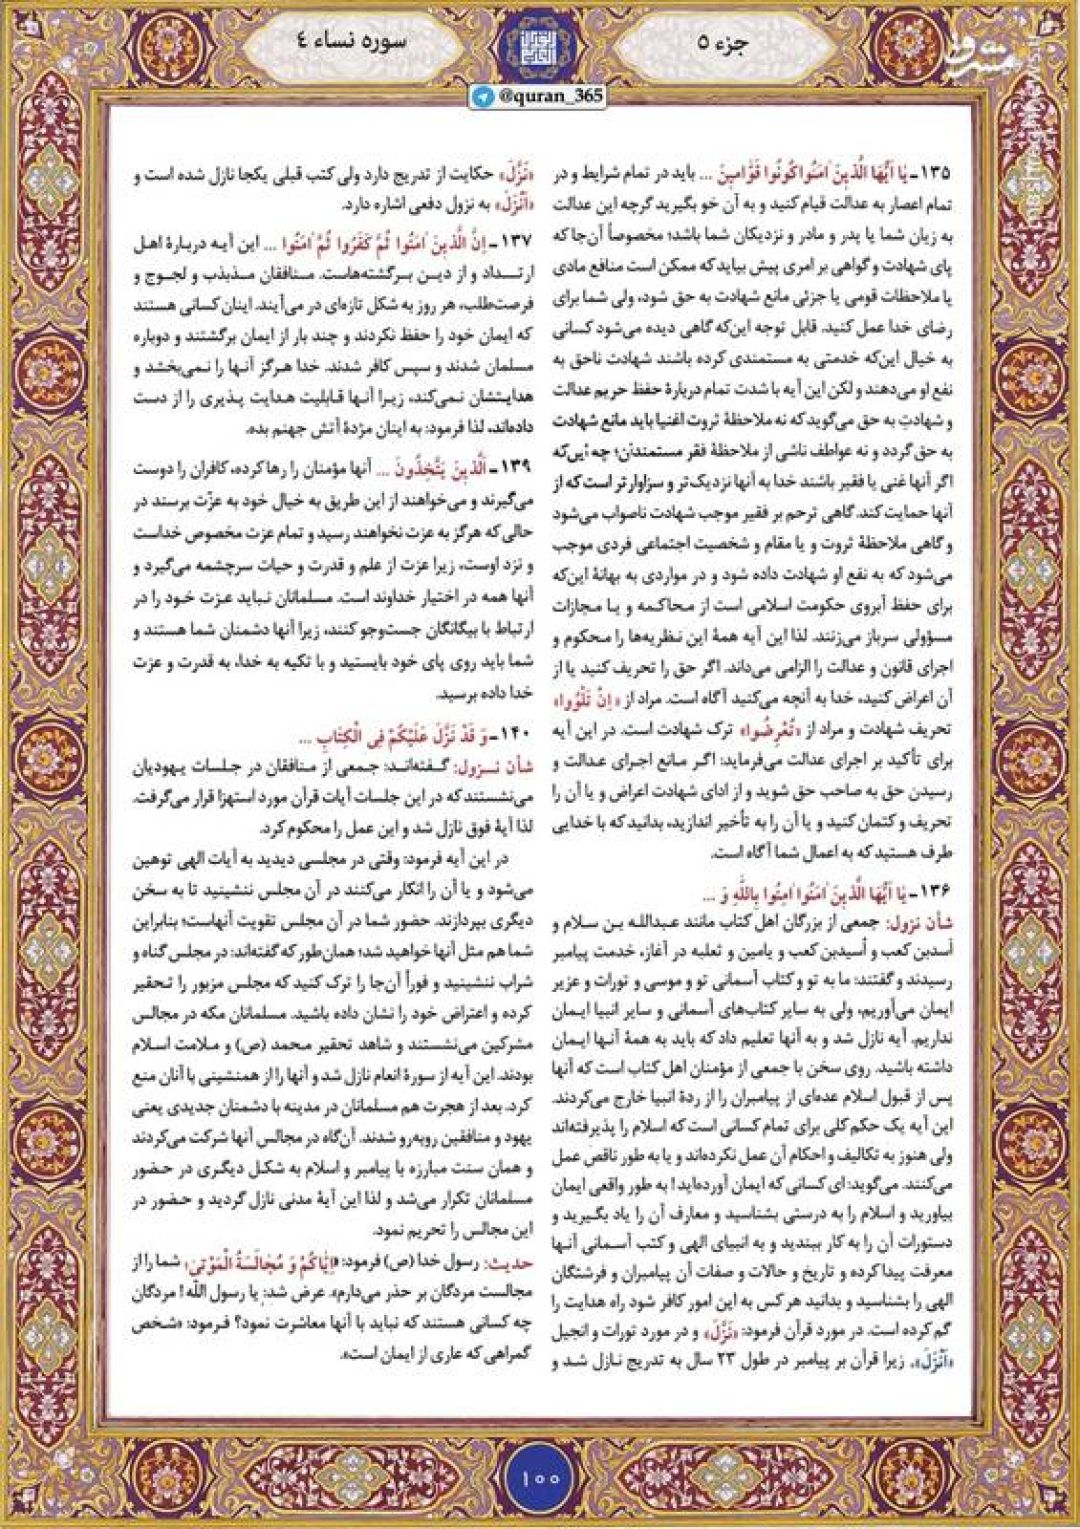 جزء ۵
سوره نساء ۴
مشرق
@quran_365
۱۳۵ـ یَا اَیُّهَا الَّذینَ اٰمَنُوا کُونُوا قَوّٰامینَ ... باید در تمام شرایط و در
تمام اعصار به عدالت قیام کنید و به آن خو بگیرید گرچه این عدالت
به زیان شما یا پدر و مادر و نزدیکان شما باشد؛ مخصوصاً آن‌جا که
پای شهادت و گواهی بر امری پیش بیاید که ممکن است منافع مادی
یا ملاحظات قومی یا جزئی مانع شهادت به حق شود، ولی شما برای
رضای خدا عمل کنید. قابل توجه این‌که گاهی دیده می‌شود کسانی
به خیال این‌که خدمتی به مستمندی کرده باشند شهادت ناحق به
نفع او می‌دهند و لکن این آیه با شدت تمام دربارهٔ حفظ حریم عدالت
و شهادتِ به حق می‌گوید که نه ملاحظهٔ ثروت اغنیا باید مانع شهادت
به حق گردد و نه عواطف ناشی از ملاحظهٔ فقر مستمندان؛ چه این‌که
اگر آنها غنی یا فقیر باشند خدا به آنها نزدیک‌تر و سزاوارتر است که از
آنها حمایت کند. گاهی ترحم بر فقیر موجب شهادت ناصواب می‌شود
و گاهی ملاحظهٔ ثروت و یا مقام و شخصیت اجتماعی فردی موجب
می‌شود که به نفع او شهادت داده شود و در مواردی به بهانهٔ این‌که
برای حفظ آبروی حکومت اسلامی است از محاکمه و یا مجازات
مسؤولی سرباز می‌زنند. لذا این آیه همهٔ این نظریه‌ها را محکوم و
اجرای قانون و عدالت را الزامی می‌داند. اگر حق را تحریف کنید یا از
آن اعراض کنید، خدا به آنچه می‌کنید آگاه است. مراد از «اِنْ تَلْوُوا»
تحریف شهادت و مراد از «تُعْرِضُوا» ترک شهادت است. در این آیه
برای تأکید بر اجرای عدالت می‌فرماید: اگر مانع اجرای عدالت و
رسیدن حق به صاحب حق شوید و از ادای شهادت اعراض و یا آن را
تحریف و کتمان کنید و یا آن را به تأخیر اندازید، بدانید که با خدایی
طرف هستید که به اعمال شما آگاه است.
۱۳۶ـ یَا اَیُّهَا الَّذینَ اٰمَنُوا اٰمِنُوا بِاللّٰهِ وَ ...
شأن نزول: جمعی از بزرگان اهل کتاب مانند عبدالله بن سلام و
اسدبن کعب و اُسیدبن کعب و یامین و ثعلبه در آغاز، خدمت پیامبر
رسیدند و گفتند: ما به تو و کتاب آسمانی تو و موسی و تورات و عزیر
ایمان می‌آوریم، ولی به سایر کتاب‌های آسمانی و سایر انبیا ایمان
نداریم. آیه نازل شد و به آنها تعلیم داد که باید به همهٔ آنها ایمان
داشته باشید. روی سخن با جمعی از مؤمنان اهل کتاب است که آنها
پس از قبول اسلام عده‌ای از پیامبران را از ردهٔ انبیا خارج می‌کردند.
این آیه یک حکم کلی برای تمام کسانی است که اسلام را پذیرفته‌اند
ولی هنوز به تکالیف و احکام آن عمل نکرده‌اند و یا به طور ناقص عمل
می‌کنند. می‌گوید: ای کسانی که ایمان آورده‌اید! به طور واقعی ایمان
بیاورید و اسلام را به درستی بشناسید و معارف آن را یاد بگیرید و
دستورات آن را به کار ببندید و به انبیای الهی و کتب آسمانی آنها
معرفت پیدا کرده و تاریخ و حالات و صفات آن پیامبران و فرشتگان
الهی را بشناسید و بدانید هر کس به این امور کافر شود راه هدایت را
گم کرده است. در مورد قرآن فرمود: «نَزَّلَ» و در مورد تورات و انجیل
«اَنْزَلَ»، زیرا قرآن بر پیامبر در طول ۲۳ سال به تدریج نازل شد و
«نَزَّلَ» حکایت از تدریج دارد ولی کتب قبلی یکجا نازل شده است و
«اَنْزَلَ» به نزول دفعی اشاره دارد.
۱۳۷ـ اِنَّ الَّذینَ اٰمَنُوا ثُمَّ کَفَرُوا ثُمَّ اٰمَنُوا ... این آیه دربارهٔ اهل
ارتداد و از دین برگشته‌هاست. منافقان مذبذب و لجوج و
فرصت‌طلب، هر روز به شکل تازه‌ای در می‌آیند. اینان کسانی هستند
که ایمان خود را حفظ نکردند و چند بار از ایمان برگشتند و دوباره
مسلمان شدند و سپس کافر شدند. خدا هرگز آنها را نمی‌بخشد و
هدایتشان نمی‌کند، زیرا آنها قابلیت هدایت پذیری را از دست
داده‌اند، لذا فرمود: به اینان مژدهٔ آتش جهنم بده.
۱۳۹ـ اَلَّذینَ یَتَّخِذُونَ ... آنها مؤمنان را رها کرده، کافران را دوست
می‌گیرند و می‌خواهند از این طریق به خیال خود به عزّت برسند در
حالی که هرگز به عزت نخواهند رسید و تمام عزت مخصوص خداست
و نزد اوست، زیرا عزت از علم و قدرت و حیات سرچشمه می‌گیرد و
آنها همه در اختیار خداوند است. مسلمانان نباید عزت خود را در
ارتباط با بیگانگان جست‌وجو کنند، زیرا آنها دشمنان شما هستند و
شما باید روی پای خود بایستید و با تکیه به خدا، به قدرت و عزت
خدا داده برسید.
۱۴۰ـ وَ قَدْ نَزَّلَ عَلَیْکُمْ فِی الْکِتٰابِ ...
شأن نزول: گفته‌اند: جمعی از منافقان در جلسات یهودیان
می‌نشستند که در این جلسات آیات قرآن مورد استهزا قرار می‌گرفت.
لذا آیهٔ فوق نازل شد و این عمل را محکوم کرد.
در این آیه فرمود: وقتی در مجلسی دیدید به آیات الهی توهین
می‌شود و یا آن را انکار می‌کنند در آن مجلس ننشینید تا به سخن
دیگری بپردازند. حضور شما در آن مجلس تقویت آنهاست؛ بنابراین
شما هم مثل آنها خواهید شد؛ همان‌طور که گفته‌اند: در مجلس گناه و
شراب ننشینید و فوراً آن‌جا را ترک کنید که مجلس مزبور را تحقیر
کرده و اعتراض خود را نشان داده باشید. مسلمانان مکه در مجالس
مشرکین می‌نشستند و شاهد تحقیر محمد (ص) و ملامت اسلام
بودند. این آیه از سورهٔ انعام نازل شد و آنها را از همنشینی با آنان منع
کرد. بعد از هجرت هم مسلمانان در مدینه با دشمنان جدیدی یعنی
یهود و منافقین روبه‌رو شدند. آن‌گاه در مجالس آنها شرکت می‌کردند
و همان سنت مبارزه با پیامبر و اسلام به شکل دیگری در حضور
مسلمانان تکرار می‌شد و لذا این آیهٔ مدنی نازل گردید و حضور در
این مجالس را تحریم نمود.
حدیث: رسول خدا (ص) فرمود: «اِیّٰاکُمْ وَ مُجٰالَسَةُ الْمَوْتیٰ؛ شما را از
مجالست مردگان بر حذر می‌دارم». عرض شد: یا رسول اللّٰه! مردگان
چه کسانی هستند که نباید با آنها معاشرت نمود؟ فرمود: «شخص
گمراهی که عاری از ایمان است».
۱۰۰